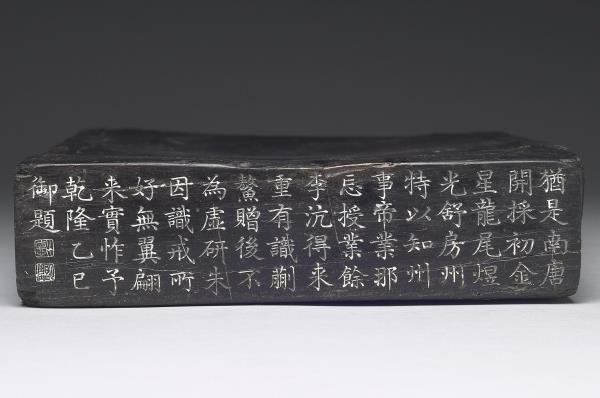 猶是南唐
開採初金
星龍尾煜
光舒房州
特以知州
事帝業那
忘授業餘
李沆得来
重有識蒯
鰲贈後不
為虛研朱
因識戒所
好無翼翩
来實怍予
乾隆乙巳
御題